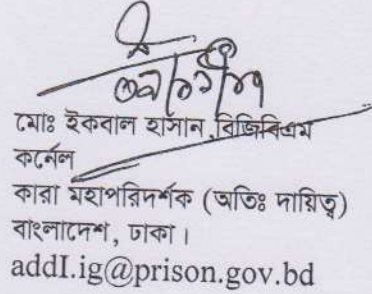 মোঃ ইকবাল হাসান, বিজিবিএম
কর্নেল
কারা মহাপরিদর্শক (অতিঃ দায়িত্ব)
বাংলাদেশ, ঢাকা।
addI.ig@prison.gov.bd